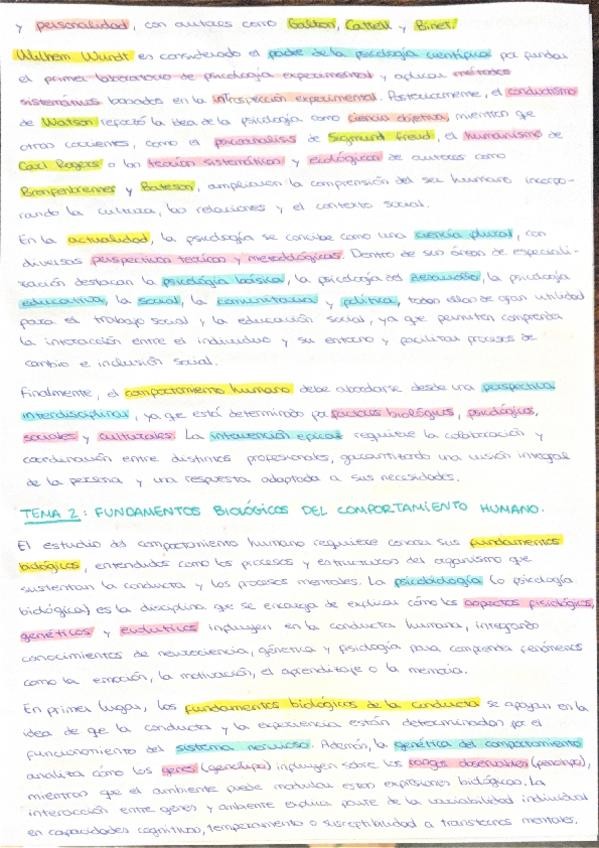 y personalidad, con autores como Galton, Cattell y Binet.
Wilhem Wundt es considerado el padre de la psicología científica por fundar
el primer laboratorio de psicología experimental y aplicar métodos
sistemáticos basados en la introspección experimental. Posteriormente, el conductismo
de Watson reforzó la idea de la psicología como ciencia objetiva, mientras que
otras corrientes, como el psicoanálisis de Sigmund Freud, el humanismo de
Carl Rogers o las teorías sistemáticas y ecológicas de autores como
Bronfenbrenner y Bateson, ampliaron la comprensión del ser humano incorpo-
rando la cultura, las relaciones y el contexto social.
En la actualidad, la psicología se concibe como una ciencia plural, con
diversas perspectivas teóricas y metodológicas. Dentro de sus áreas de especiali-
zación destacan la psicología básica, la psicología del desarrollo, la psicología
educativa, la social, la comunitaria y política, todas ellas de gran utilidad
para el trabajo social y la educación social, ya que permiten comprender
la interacción entre el individuo y su entorno y facilitar procesos de
cambio e inclusión social.
Finalmente, el comportamiento humano debe abordarse desde una perspectiva
interdisciplinar, ya que está determinado por factores biológicos, psicológicos,
sociales y culturales. La intervención eficaz requiere la colaboración y
coordinación entre distintos profesionales, garantizando una visión integral
de la persona y una respuesta adaptada a sus necesidades.
TEMA 2: FUNDAMENTOS BIOLÓGICOS DEL COMPORTAMIENTO HUMANO.
El estudio del comportamiento humano requiere conocer sus fundamentos
biológicos, entendidos como los procesos y estructuras del organismo que
sustentan la conducta y los procesos mentales. La psicobiología (o psicología
biológica) es la disciplina que se encarga de explicar cómo los aspectos fisiológicos,
genéticos y evolutivos influyen en la conducta humana, integrando
conocimientos de neurociencia, genética y fisiología para comprender fenómenos
como la emoción, la motivación, el aprendizaje o la memoria.
En primer lugar, los fundamentos biológicos de la conducta se apoyan en la
idea de que la conducta y la experiencia están determinadas por el
funcionamiento del sistema nervioso. Además, la genética del comportamiento
analiza cómo los genes (genotipo) influyen sobre los rasgos observables (fenotipo),
mientras que el ambiente puede modular estas expresiones biológicas. La
interacción entre genes y ambiente explica parte de la variabilidad individual
en capacidades cognitivas, temperamento o susceptibilidad a trastornos mentales.